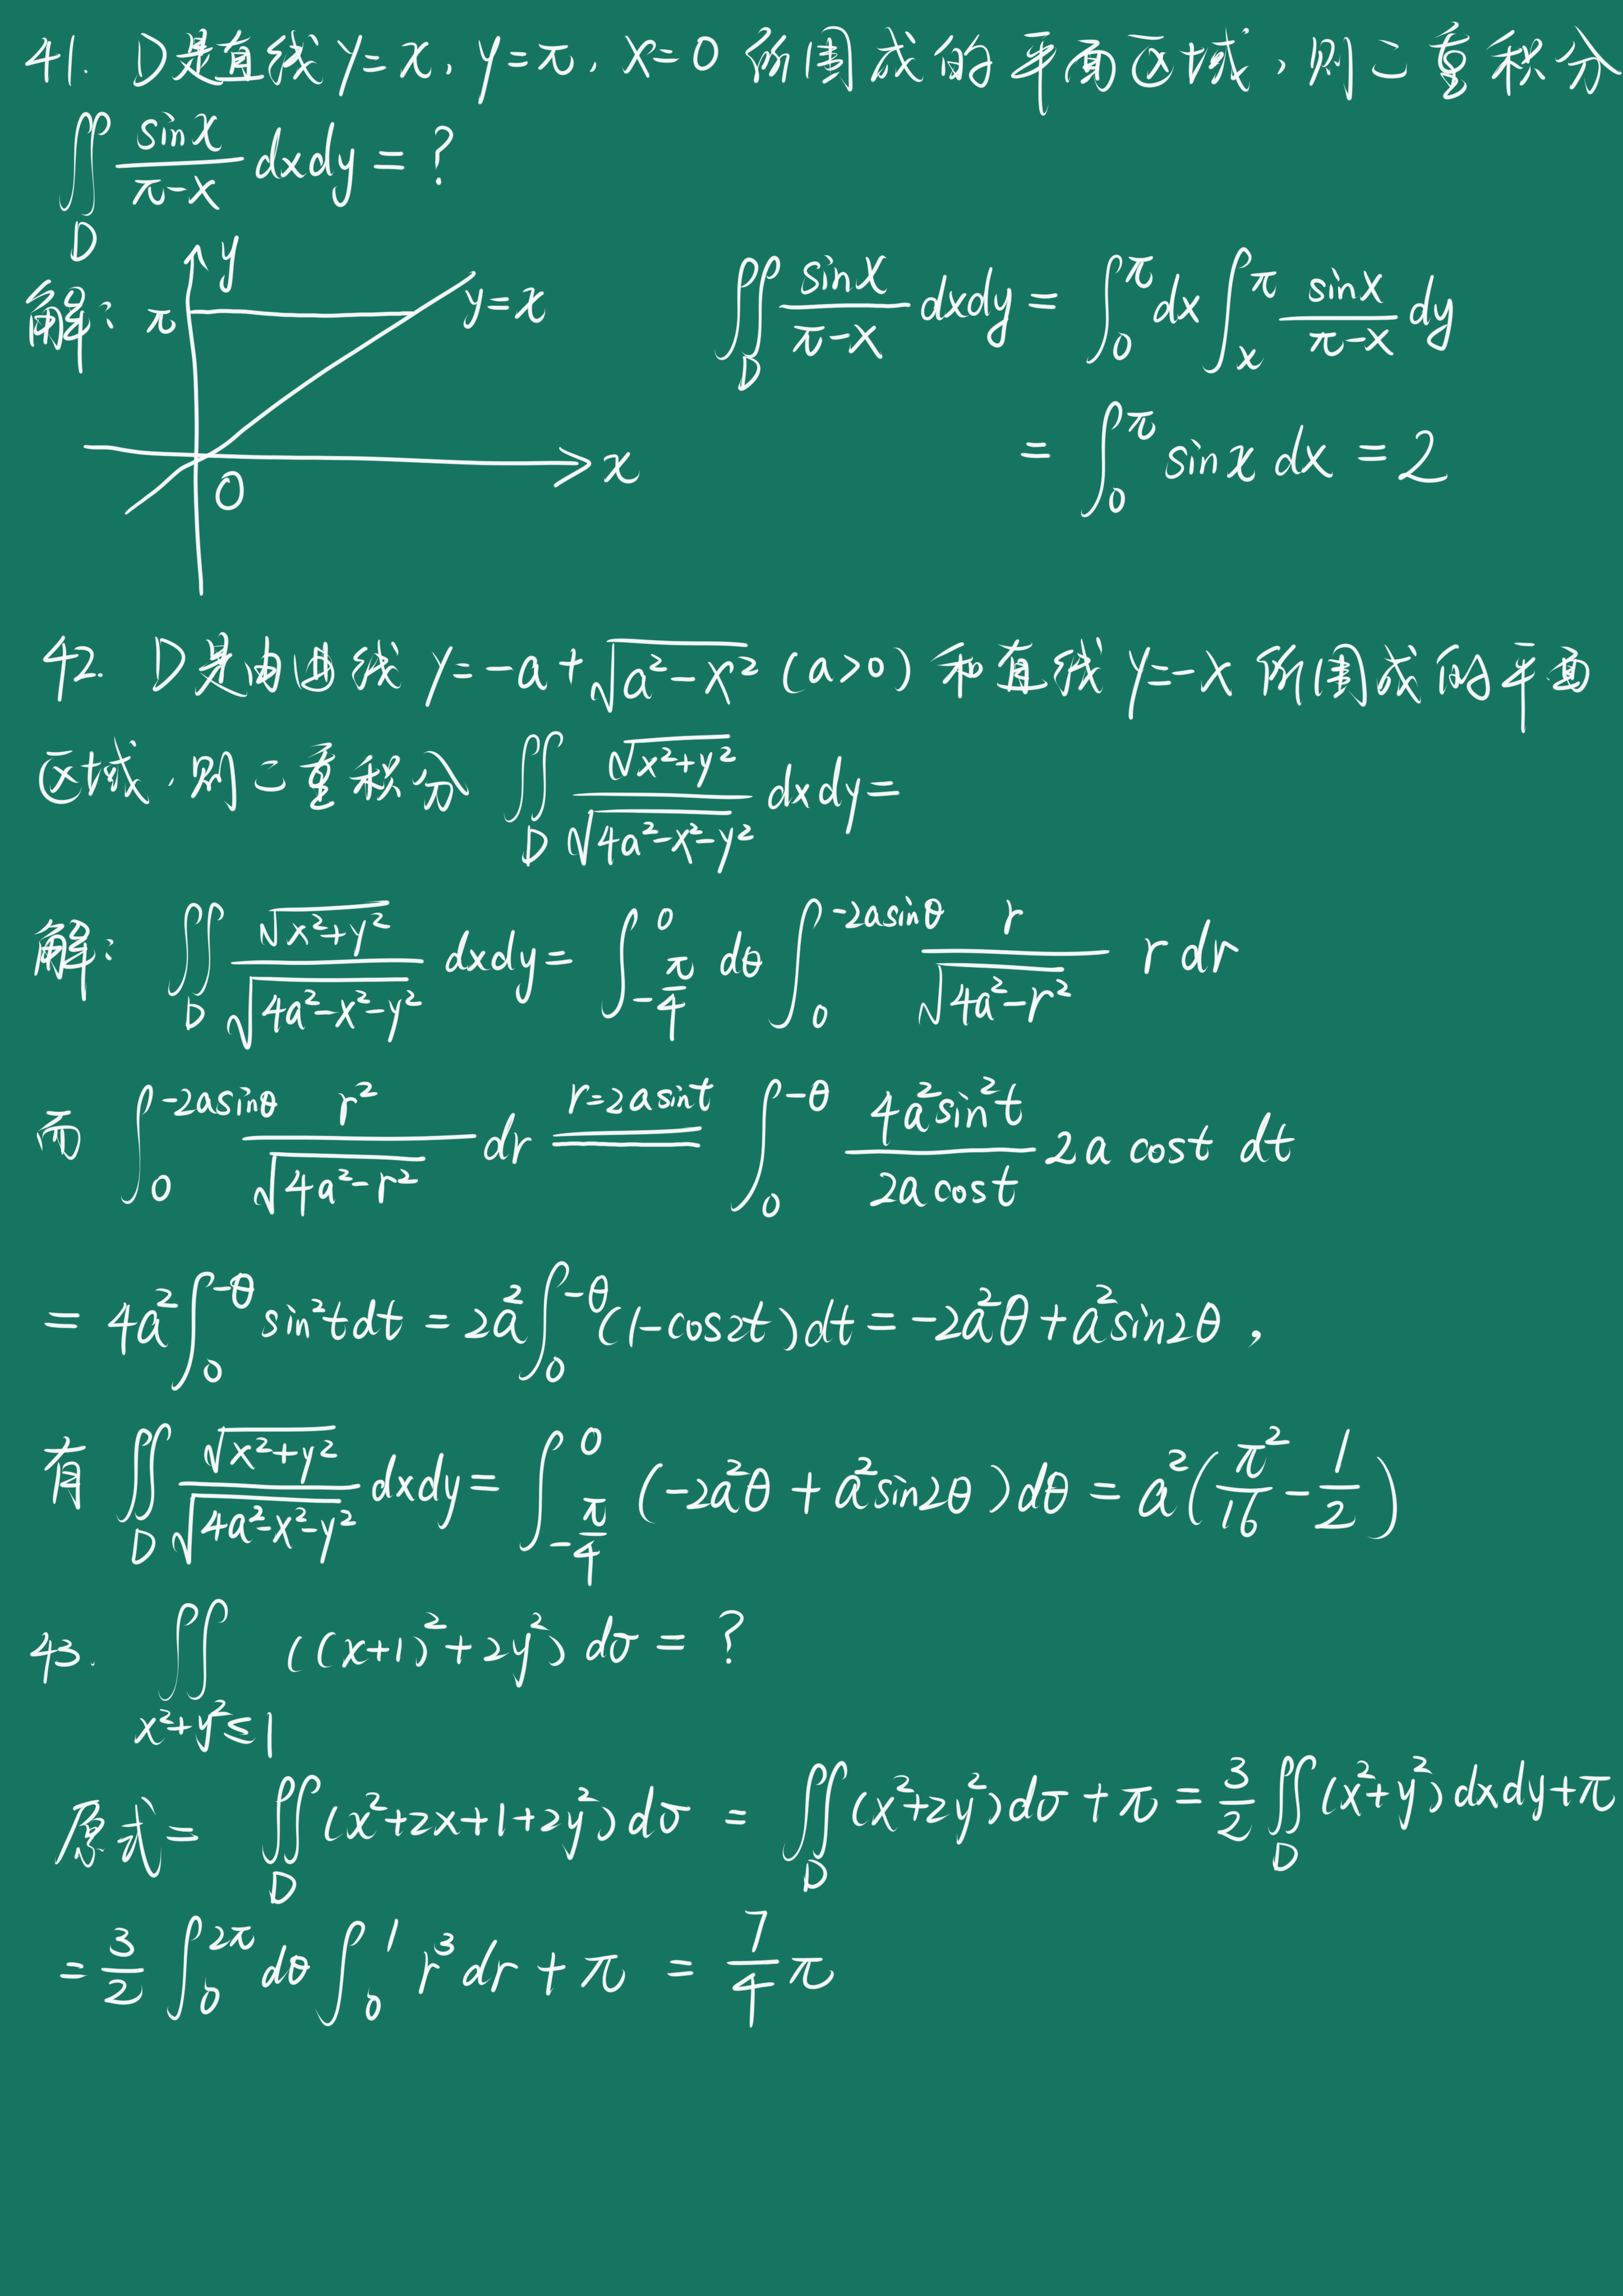 41. D是直线 y=x, y=π, x=0 所围成的平面区域,则二重积分
∬_D sinx/(π-x) dxdy = ?
解: π y y=x x 0
∬_D sinx/(π-x) dxdy = ∫_0^π dx ∫_x^π sinx/(π-x) dy
= ∫_0^π sinx dx = 2
42. D是由曲线 y=-a+√(a²-x²) (a>0) 和直线 y=-x 所围成的平面
区域,则二重积分 ∬_D √(x²+y²)/√(4a²-x²-y²) dxdy=
解: ∬_D √(x²+y²)/√(4a²-x²-y²) dxdy = ∫_{-π/4}^0 dθ ∫_0^{-2asinθ} r/√(4a²-r²) r dr
而 ∫_0^{-2asinθ} r²/√(4a²-r²) dr ==(r=2asint)== ∫_0^{-θ} 4a²sin²t/(2acost) 2a cost dt
= 4a² ∫_0^{-θ} sin²t dt = 2a² ∫_0^{-θ} (1-cos2t)dt = -2a²θ+a²sin2θ,
有 ∬_D √(x²+y²)/√(4a²-x²-y²) dxdy = ∫_{-π/4}^0 (-2a²θ + a²sin2θ)dθ = a²(π²/16 - 1/2)
43. ∬_{x²+y²≤1} ((x+1)²+2y²) dσ = ?
原式= ∬_D (x²+2x+1+2y²)dσ = ∬_D (x²+2y²)dσ + π = 3/2 ∬_D (x²+y²)dxdy+π
= 3/2 ∫_0^{2π} dθ ∫_0^1 r³ dr + π = 7/4 π